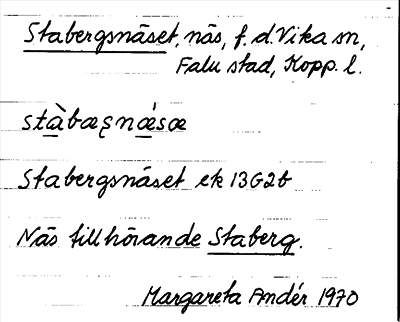 Stabergsnäset, näs, f.d. Vika sn,
Falu stad, Kopp. l.
stàbæʂnǽsæ
Stabergsnäset ek 13G2b
Näs tillhörande Staberg.
Margareta Andér 1970